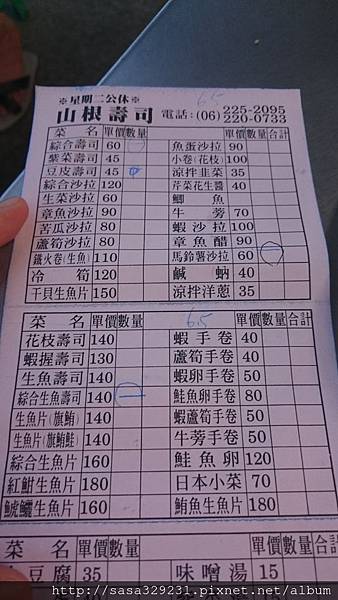 ※星期二公休※
山根壽司 電話:(06) 225-2095
220-0733
65
菜名 單價 數量 菜名 單價 數量 合計
綜合壽司 60 魚蛋沙拉 90
紫菜壽司 45 小卷(花枝) 100
豆皮壽司 45 涼拌韭菜 35
綜合沙拉 120 芹菜花生醬 40
生菜沙拉 60 鯽魚
章魚沙拉 90 牛蒡 70
苦瓜沙拉 80 蝦沙拉 100
蘆筍沙拉 80 章魚醋 90
鐵火卷(生魚) 110 馬鈴薯沙拉 60
冷筍 120 鹹蚋 40
干貝生魚片 150 涼拌洋蔥 35
65
菜名 單價 數量 單價 數量 合計
花枝壽司 140 蝦手卷 40
蝦握壽司 130 蘆筍手卷 40
生魚壽司 140 蝦卵手卷 50
綜合生魚壽司 140 鮭魚卵手卷 80
生魚片(旗鮪) 140 蝦蘆筍手卷 50
生魚片(旗鮪鮭) 140 牛蒡手卷 50
綜合生魚片 160 鮭魚卵 120
紅魽生魚片 180 日本小菜 70
生魚片 160 鮪魚生魚片 180
菜名 單價 數量 菜名 單價 數量 合計
豆腐 35 味噌湯 15
http://sasa329231.pixnet.net/album